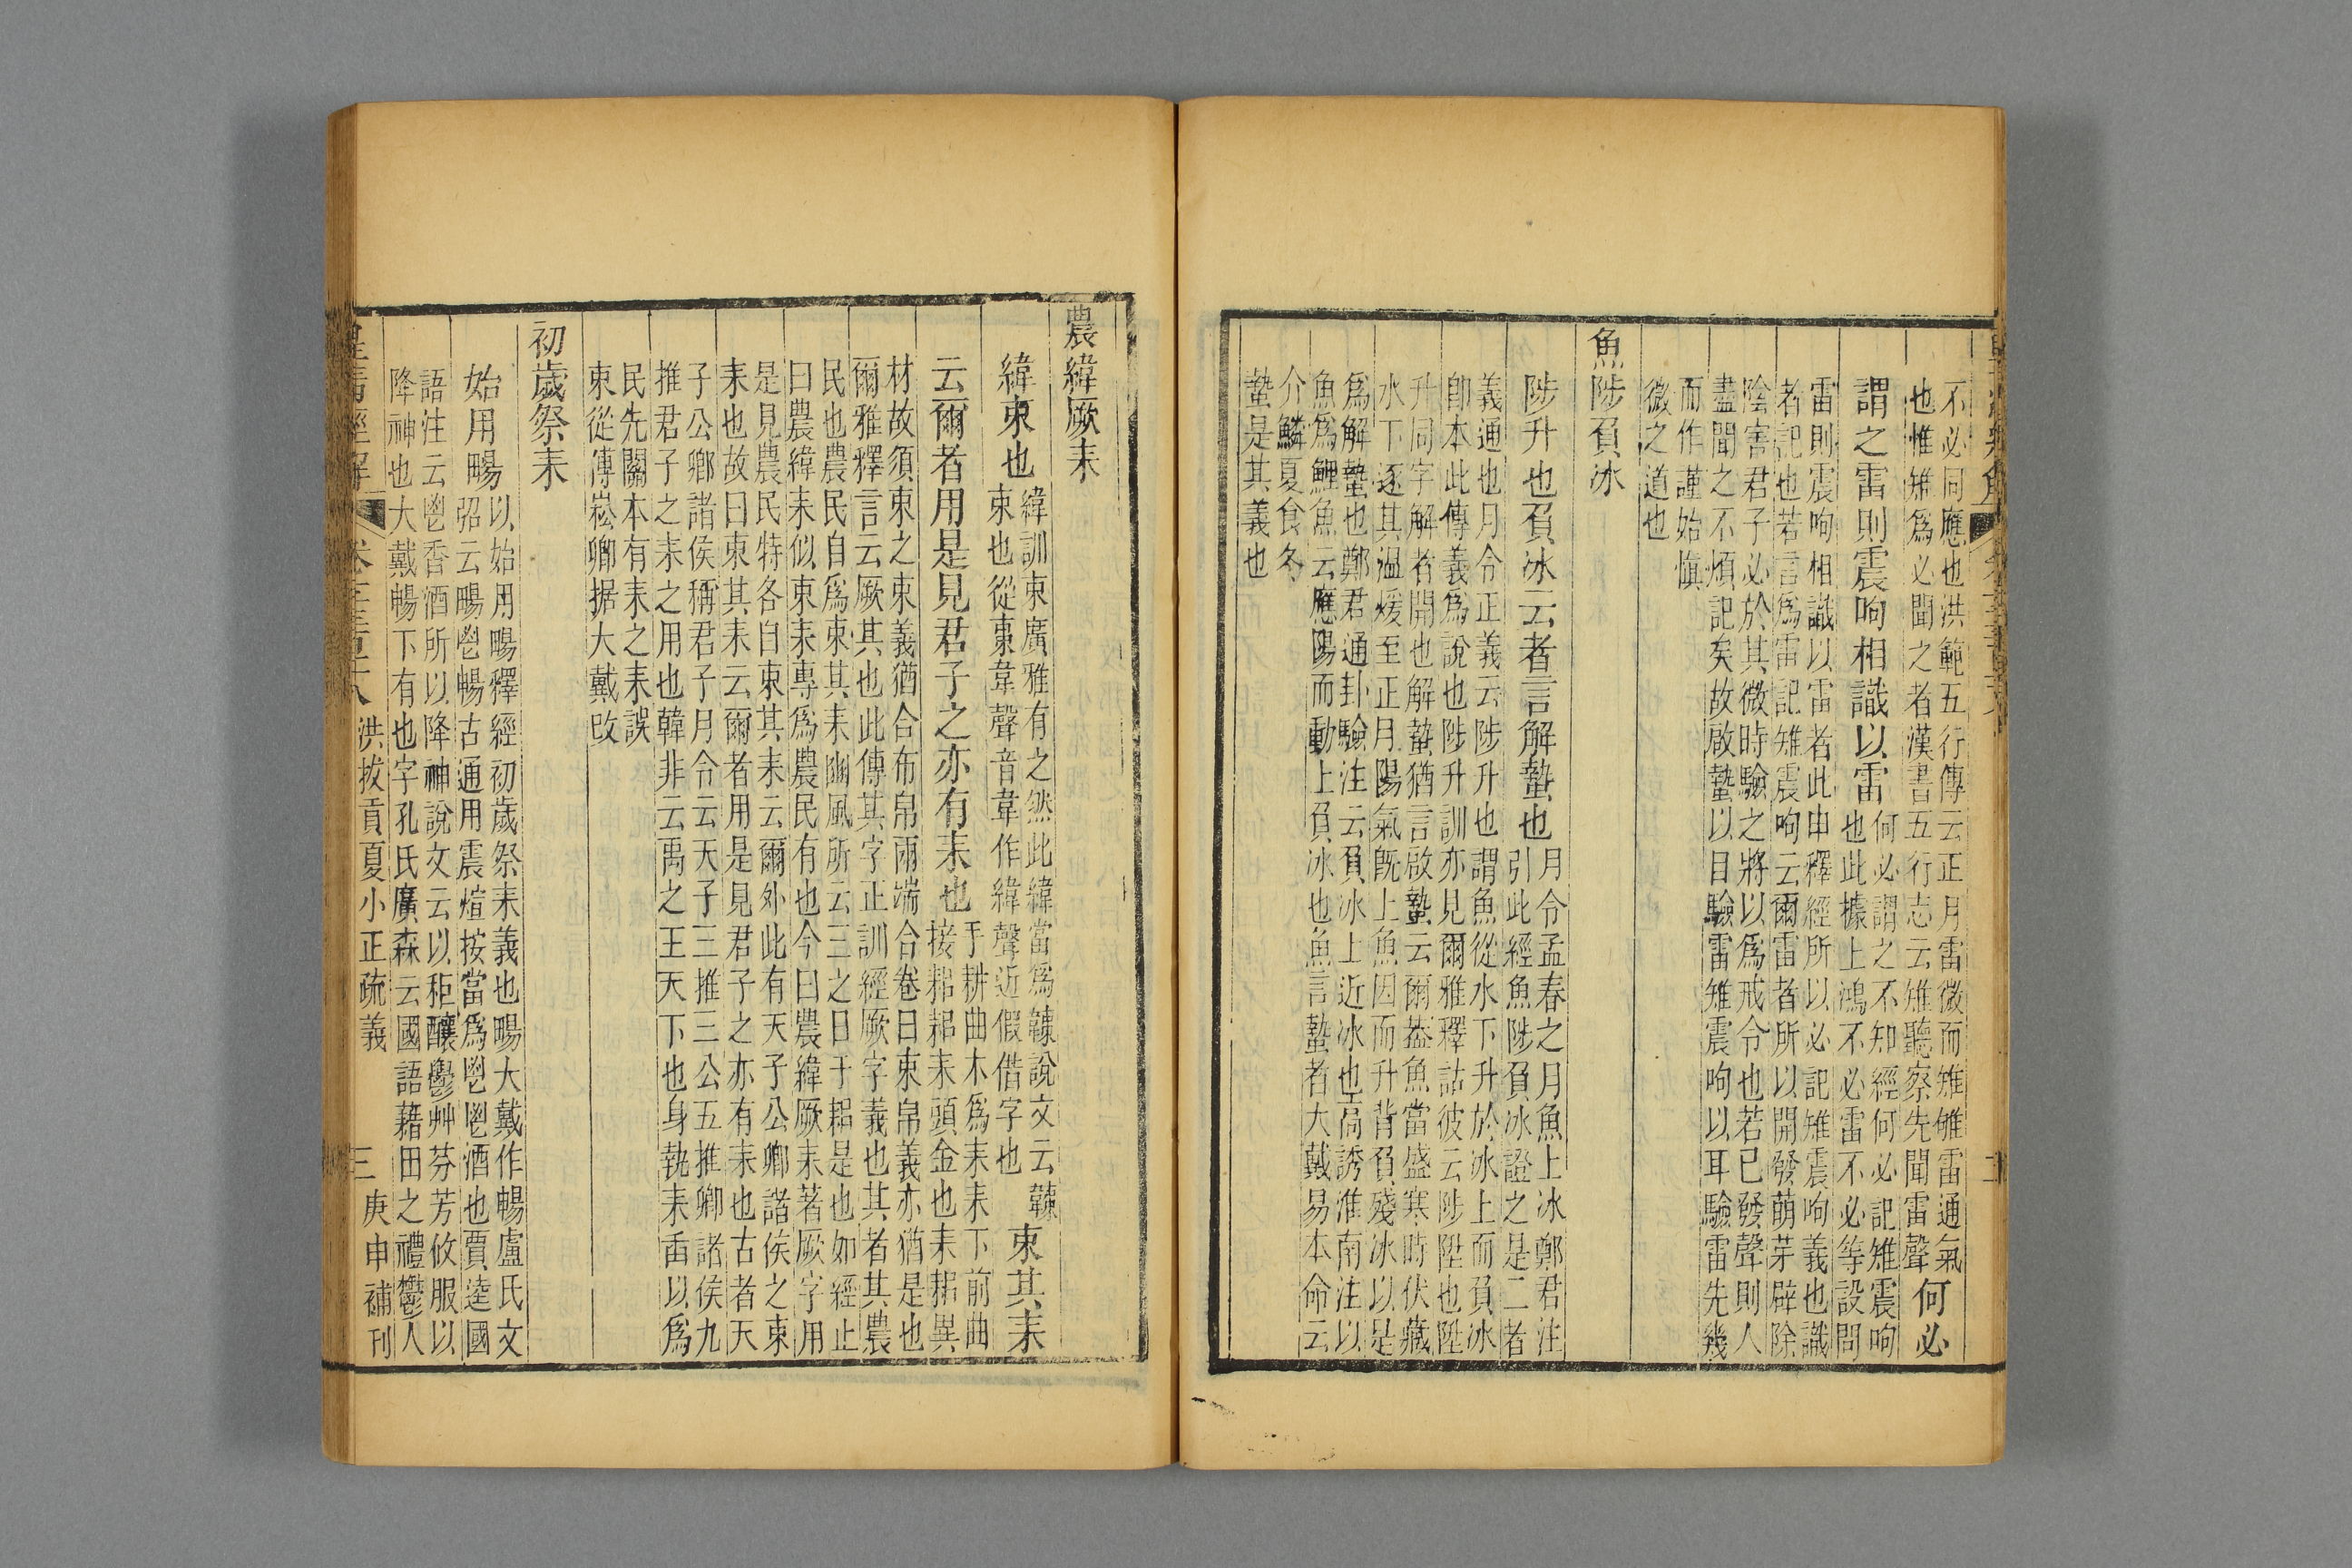 不必同應也洪範五行傳云正月雷微而雉雊雷通氣
也惟雉爲必聞之者漢書五行志云雉聽察先聞雷聲
何必
謂之雷則震呴相識以雷
何必謂之不知經何必記雉震呴
也此據上鴻不必雷不必等設問
雷則震呴相識以雷者此申釋經所以必記雉震呴義也識
者記也若言爲雷記雉震呴云爾雷者所以開發萌芽辟除
陰害君子必於其微時驗之將以爲戒令也若已發聲則人
盡聞之不煩記矣故啟蟄以目驗雷雉震呴以耳驗雷先幾
而作謹始愼
微之道也
魚陟負冰
陟升也負冰云者言解蟄也
月令孟春之月魚上冰鄭君注
引此經魚陟負冰證之是二者
義通也月令正義云陟升也謂魚從水下升於冰上而負冰
卽本此傳義爲說也陟升訓亦見爾雅釋詁彼云陟陞也陞
升同字解者開也解蟄猶言啟蟄云爾葢魚當盛寒時伏藏
水下逐其溫煖至正月陽氣旣上魚因而升背負殘冰以是
爲解蟄也鄭君通卦驗注云負冰上近冰也高誘淮南注以
魚爲鯉魚云應陽而動上負冰也魚言蟄者大戴易本命云
介鱗夏食冬
蟄是其義也
農緯厥耒
緯束也
緯訓束廣雅有之然此緯當爲𩏑說文云𩏑
束也從㯻韋聲音韋作緯聲近假借字也
束其耒
云爾者用是見君子之亦有耒也
手耕曲木爲耒耒下前曲
接耜耜耒頭金也耒耜異
材故須束之束義猶合布帛兩端合卷曰束帛義亦猶是也
爾雅釋言云厥其也此傳其字正訓經厥字義也其者其農
民也農民自爲束其耒豳風所云三之日于耜是也如經止
曰農緯耒似束耒專爲農民有也今曰農緯厥耒著厥字用
是見農民特各自束其耒云爾外此有天子公卿諸侯之束
耒也故曰束其耒云爾者用是見君子之亦有耒也古者天
子公卿諸侯稱君子月令云天子三推三公五推卿諸侯九
推君子之耒之用也韓非云禹之王天下也身執耒臿以爲
民先關本有耒之耒誤
束從傅崧卿据大戴改
初歲祭耒
始用畼
以始用畼釋經初歲祭耒義也畼大戴作暢盧氏文
弨云畼鬯暢古通用震煊按當爲鬯鬯酒也賈逵國
語注云鬯香酒所以降神說文云以秬釀鬱艸芬芳攸服以
降神也大戴暢下有也字孔氏廣森云國語藉田之禮鬱人
洪拔貢夏小正疏義
三
庚申補刊